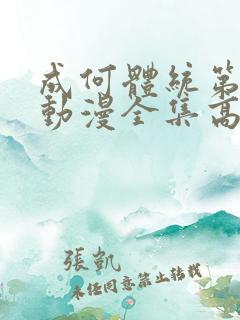 成何體統第
動漫全集高
張凱
未経同意禁止轉載